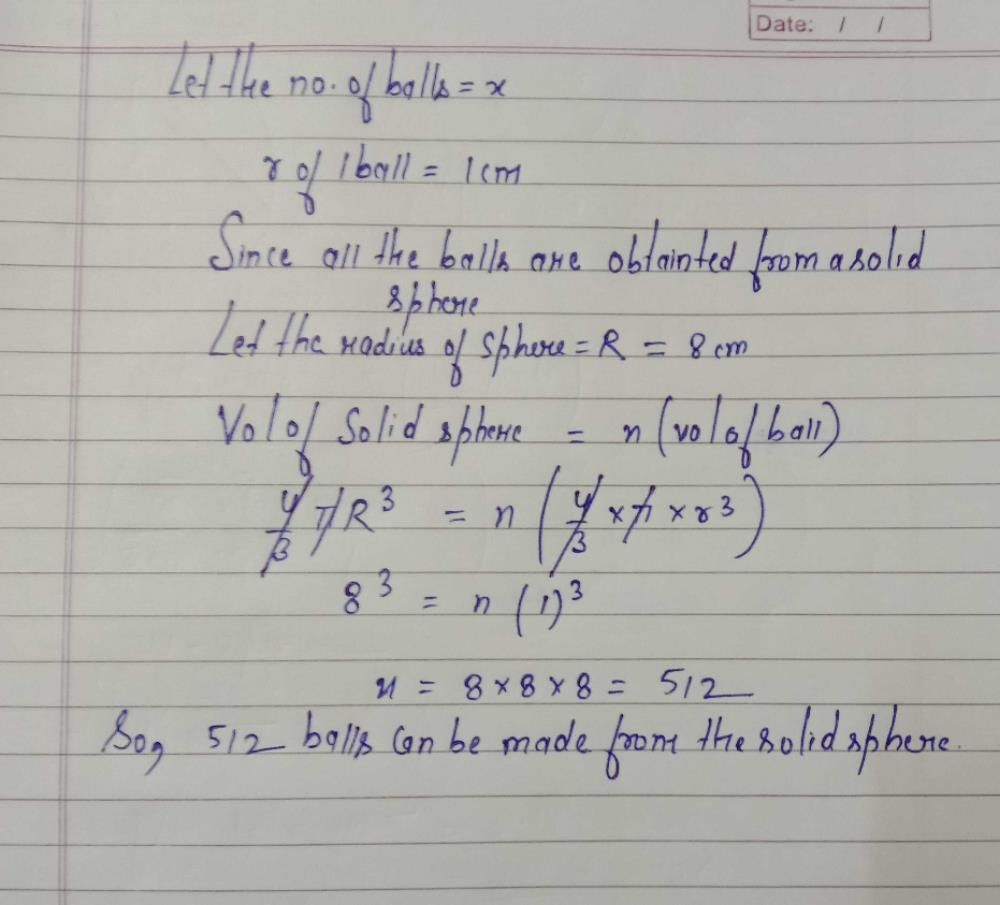 Date: / /
Let the no. of balls = x
r of 1 ball = 1 cm
Since all the balls are obtainted from a solid
sphere
Let the radius of sphere = R = 8 cm
Vol of Solid sphere = n (vol of ball)
4/3 πR³ = n (4/3 × π × r³)
8³ = n (1)³
n = 8 × 8 × 8 = 512
So, 512 balls can be made from the solid sphere.